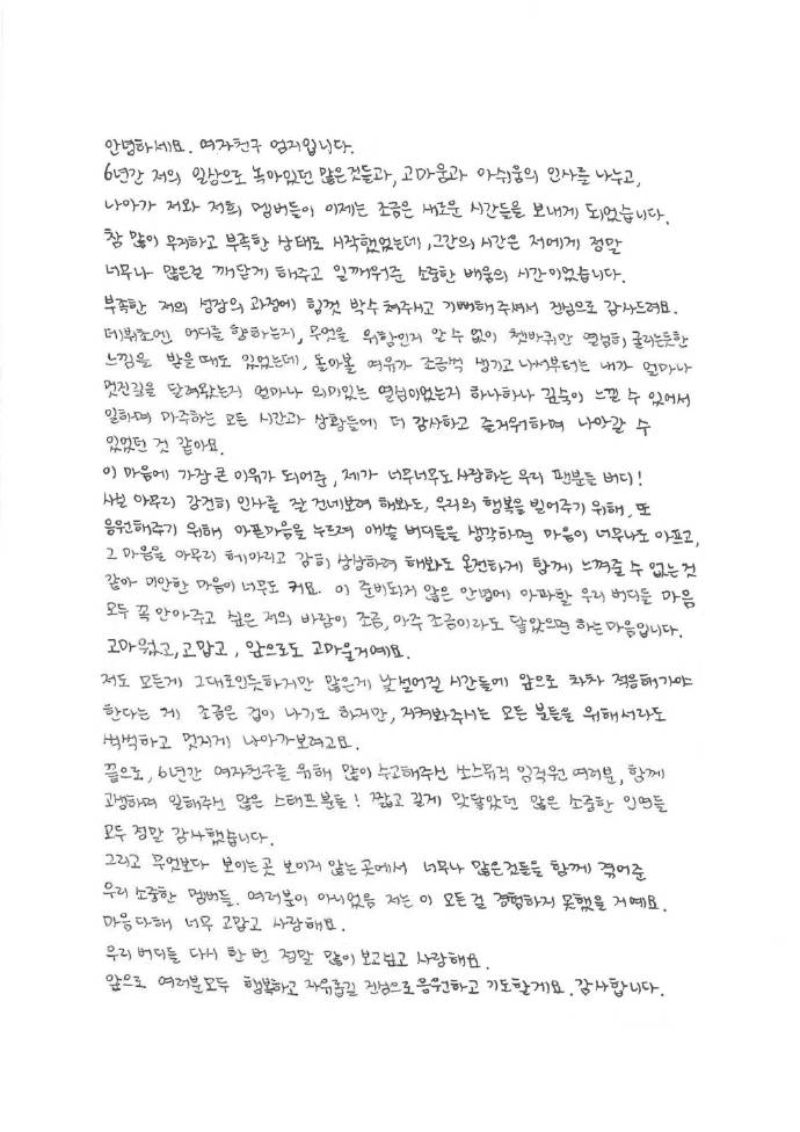 안녕하세요. 여자친구 엄지입니다.
6년간 저의 일상으로 녹아있던 많은것들과, 고마움과 아쉬움의 인사를 나누고,
나아가 저와 저희 멤버들이 이제는 조금은 새로운 시간들을 보내게 되었습니다.
참 많이 무지하고 부족한 상태로 시작했었는데, 그간의 시간은 저에게 정말
너무나 많은걸 깨닫게 해주고 일깨워준 소중한 배움의 시간이었습니다.
부족한 저의 성장의 과정에 힘껏 박수 쳐주시고 기뻐해 주셔서 진심으로 감사드려요.
데뷔초에 어디를 향하는지, 무엇을 위함인지 알 수 없이 쳇바퀴만 열심히 굴리는듯한
느낌을 받을 때도 있었는데, 돌아볼 여유가 조금씩 생기고 나서부터는 내가 얼마나
멋진길을 달려왔는지 얼마나 의미있는 열심이었는지 하나하나 깊숙이 느낄 수 있어서
일하며 마주하는 모든 시간과 상황들에 더 감사하고 즐거워하며 나아갈 수
있었던 것 같아요.
이 마음에 가장 큰 이유가 되어준, 제가 너무너무도 사랑하는 우리 팬분들 버디!
사실 아무리 강건히 인사를 잘 건네보려 해봐도, 우리의 행복을 빌어주기 위해, 또
응원해주기 위해 아픈마음을 누르며 애쓸 버디들을 생각하면 마음이 너무나도 아프고,
그 마음을 아무리 헤아리고 감히 상상하려 해봐도 온전하게 함께 느껴줄 수 없는 것
같아 미안한 마음이 너무도 커요. 이 준비되지 않은 안녕에 아파할 우리 버디들 마음
모두 꼭 안아주고 싶은 저의 바람이 조금, 아주 조금이라도 닿았으면 하는 마음입니다.
고마웠고, 고맙고, 앞으로도 고마울거예요.
저도 모든게 그대로인듯하지만 많은게 낯설어질 시간들에 앞으로 차차 적응해가야
한다는 게 조금은 겁이 나기도 하지만, 지켜봐주시는 모든 분들을 위해서라도
씩씩하고 멋지게 나아가보려고요.
끝으로, 6년간 여자친구를 위해 많이 수고해주신 쏘스뮤직 임직원 여러분, 함께
고생하며 일해주신 많은 스태프분들! 짧고 길게 맞닿았던 많은 소중한 인연들
모두 정말 감사했습니다.
그리고 무엇보다 보이는곳 보이지 않는 곳에서 너무나 많은것들을 함께 겪어준
우리 소중한 멤버들. 여러분이 아니었음 저는 이 모든 걸 경험하지 못했을 거예요.
마음 다해 너무 고맙고 사랑해요.
우리 버디들 다시 한 번 정말 많이 보고싶고 사랑해요.
앞으로 여러분모두 행복하고 자유롭길 진심으로 응원하고 기도할게요. 감사합니다.